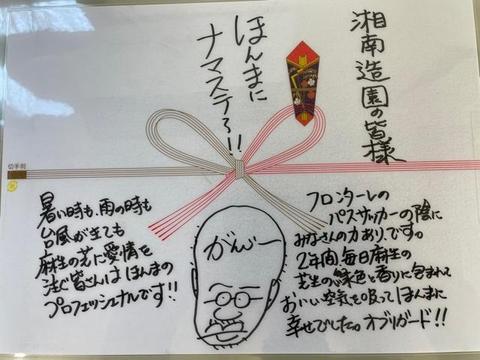 湘南造園の皆様
ほんまに
ナマステ〜!!
フロンターレの
パスサッカーの陰に
みなさんの力あり、です。
2年間、毎日麻生の
芝生の緑色と香りに包まれて
おいしい空気を吸ってほんまに
幸せでした。オブリガード!!
がんじー
暑い時も、雨の時も
台風がきても
麻生の芝に愛情を
注ぐ皆さんは ほんまの
プロフェッショナルです!!